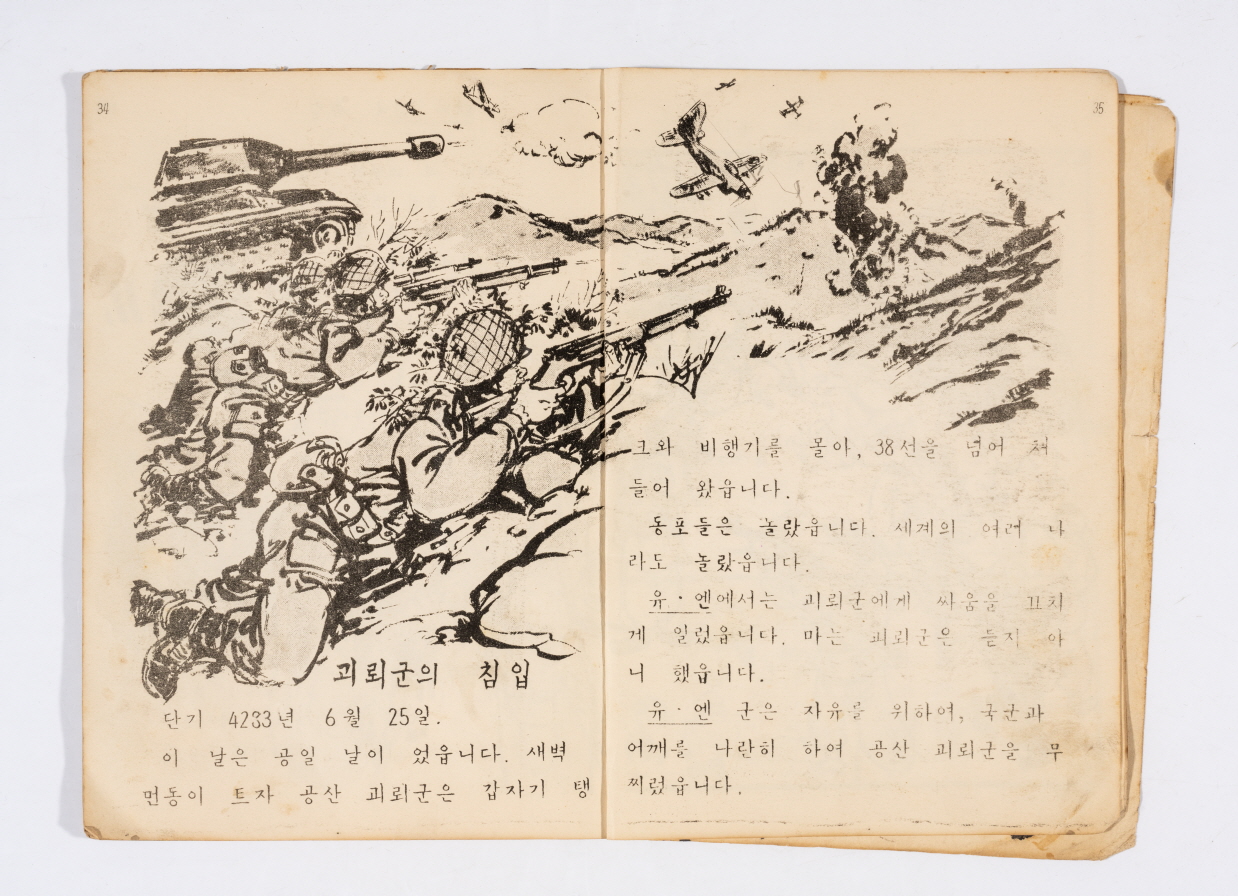 34
괴뢰군의 침입
단기 4283년 6월 25일.
이 날은 공일 날이 었읍니다. 새벽
먼동이 트자 공산 괴뢰군은 갑자기 탱
35
크와 비행기를 몰아, 38선을 넘어 쳐
들어 왔읍니다.
동포들은 놀랐읍니다. 세계의 여러 나
라도 놀랐읍니다.
유·엔에서는 괴뢰군에게 싸움을 끄치
게 일렀읍니다. 마는 괴뢰군은 듣지 아
니 했읍니다.
유·엔 군은 자유를 위하여, 국군과
어깨를 나란히 하여 공산 괴뢰군을 무
찌렀읍니다.